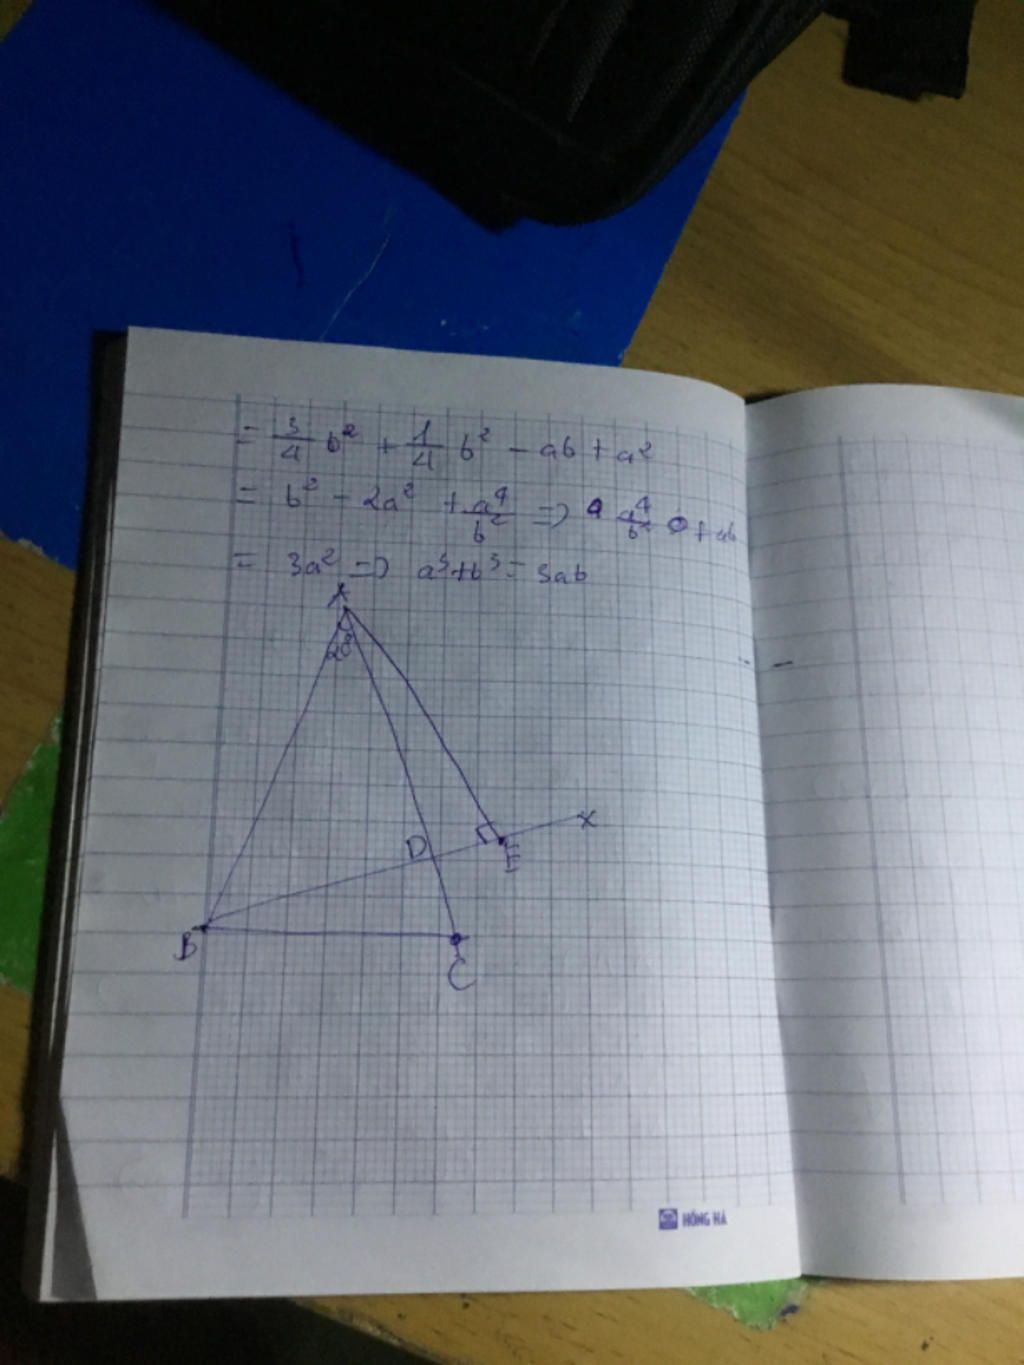 = 3/4 b² + 1/4 b² - ab + a²
= b² - 2a² + a⁴/b² => a⁴/b² + ab
= 3a² => a³+b³= 3ab
A
20°
D
E
x
B
C
HỒNG HÀ